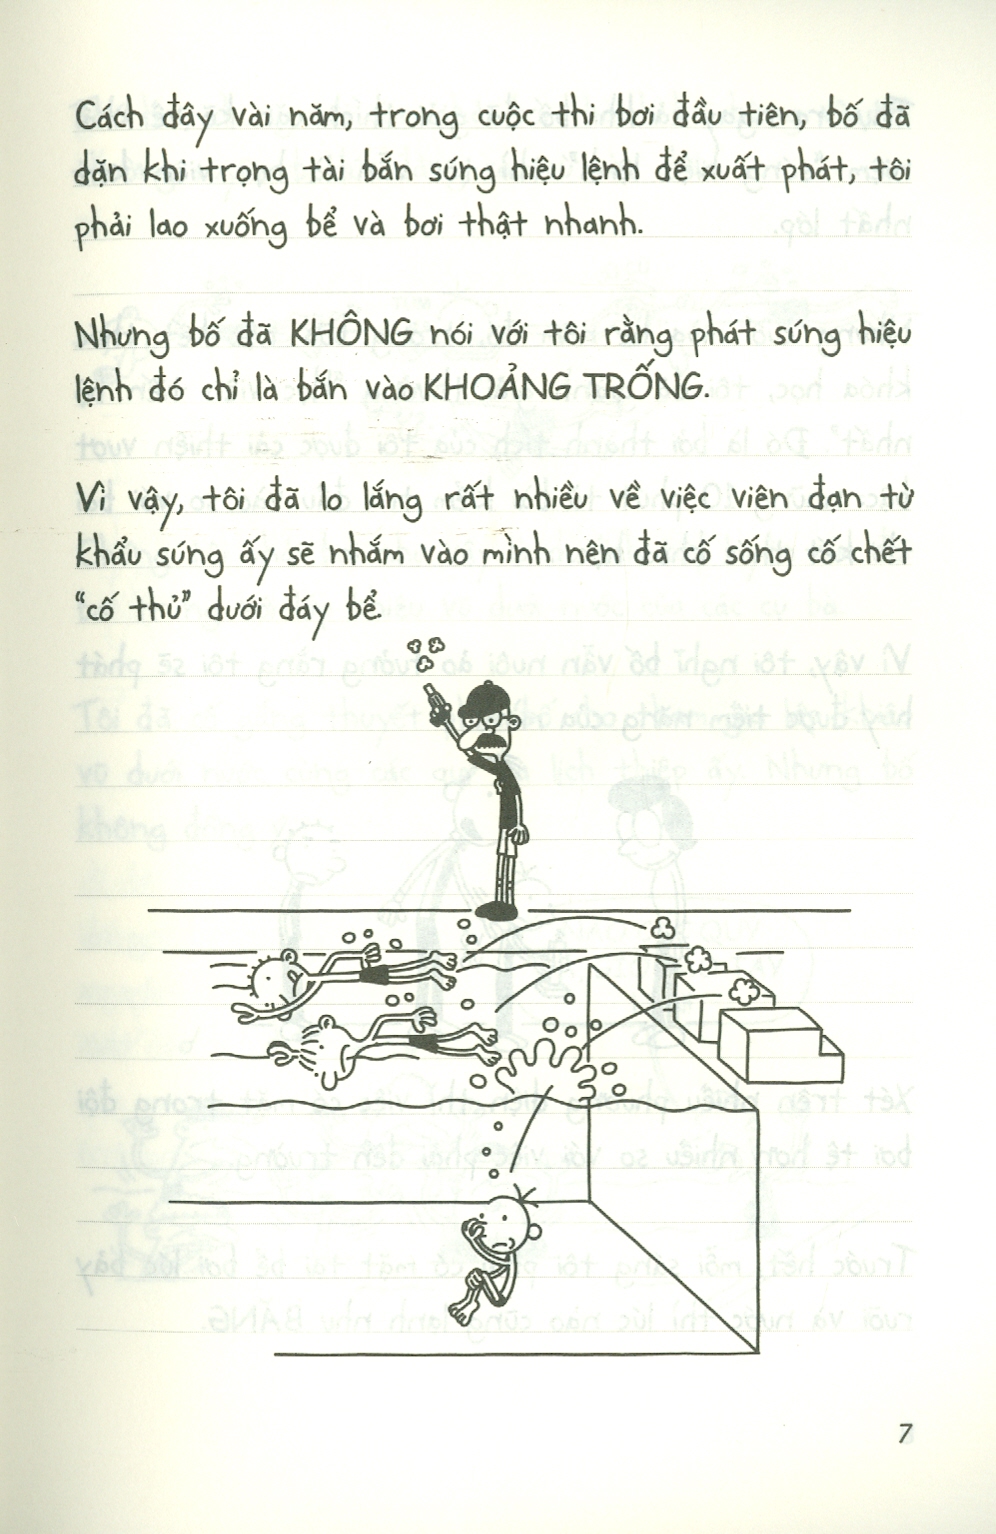 Cách đây vài năm, trong cuộc thi bơi đầu tiên, bố đã
dặn khi trọng tài bắn súng hiệu lệnh để xuất phát, tôi
phải lao xuống bể và bơi thật nhanh.
Nhưng bố đã KHÔNG nói với tôi rằng phát súng hiệu
lệnh đó chỉ là bắn vào KHOẢNG TRỐNG.
Vì vậy, tôi đã lo lắng rất nhiều về việc viên đạn từ
khẩu súng ấy sẽ nhắm vào mình nên đã cố sống cố chết
“cố thủ” dưới đáy bể.
7